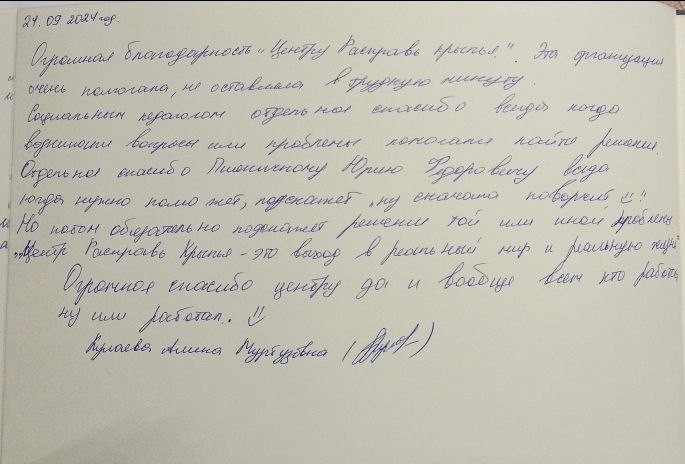 24.09.2024год.
Огромная благодарность "Центру Расправь крылья". Эта организация
очень помогала, не оставляла в трудную минуту.
Социальным педагогам отдельное спасибо всегда когда
возникали вопросы или проблемы помогали найти решение.
Отдельное спасибо Юрию Федоровичу всегда
когда нужно поможет, подскажет "ну сначала поворчит ☺"!
Но потом обязательно подскажет решение той или иной проблемы
"Центр Расправь Крылья" - это выход в реальный мир и реальную жизнь
Огромная спасибо центру да и вообще всем кто работа
ну или работал. ☺
Кулаева Алина Муртузовна (